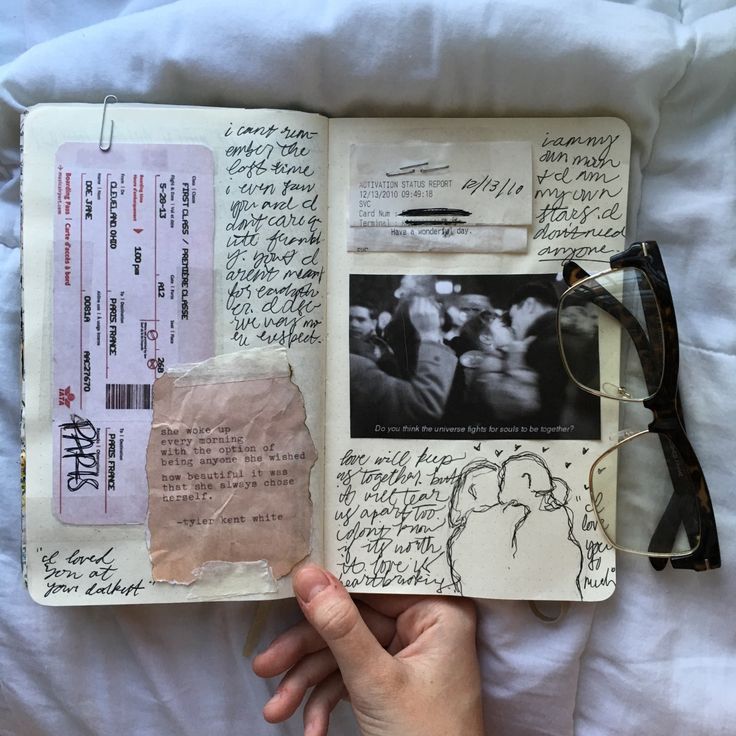 Boarding Pass | Carte d'accès à bord
DOE JANE
CLEVELAND OHIO
PARIS FRANCE
0081A
AAC27670
PARIS FRANCE
FIRST CLASS / PREMIÈRE CLASSE
5-20-13
A12
1:00 pm
PARIS
i cant rem-
ember the
last time
i even saw
you and i
dont care q
uite frankl
y. you & i
arent meant
for each oth
er. i dese
rve way mo
re respect.
she woke up
every morning
with the option of
being anyone she wished
how beautiful it was
that she always chose
herself.
-tyler kent white
"i loved
you at
your darkest"
ACTIVATION STATUS REPORT
12/13/2010 09:49:18
SVC
Card Num
Terminal
Have a wonderful day.
12/13/10
i am my
own moon
& i am
my own
stars. i
dont need
anyone.
Do you think the universe fights for souls to be together?
love will keep
us together but
it will tear
us apart too
i dont know
if its worth
it. love is
heartbreaking.
"i
love
you
so
much"